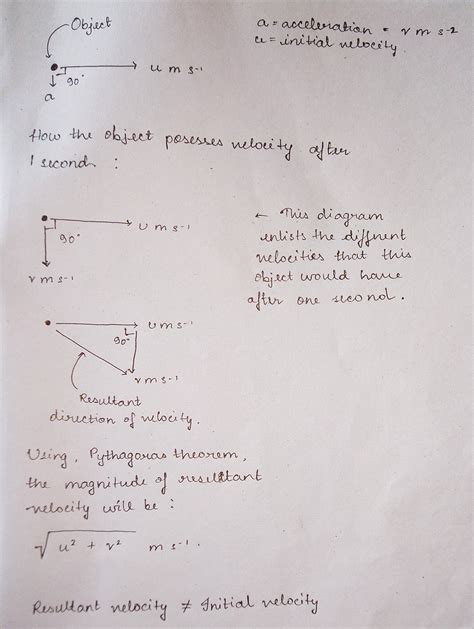 Object
a = acceleration = v m s-2
u = initial velocity
u m s-1
90°
a
How the object posesses velocity after
1 second :
U m s-1
90°
v m s-1
← This diagram
enlists the diffrent
velocities that this
object would have
after one second.
U m s-1
90°
v m s-1
Resultant
direction of velocity.
Using, Pythagoras theorem,
the magnitude of resultant
velocity will be :
√u² + v² m s-1.
Resultant velocity ≠ Initial velocity